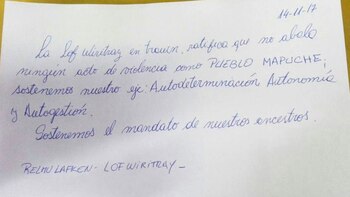 14-11-17
La Lof Wiritray en trawn, ratifica que no abala
ningún acto de violencia como PUEBLO MAPUCHE,
sostenemos nuestro eje: Autodeterminación, Autonomía
y Autogestión.
Sostenemos el mandato de nuestros ancestros.
RELMU LAFKEN - LOF WIRITRAY -